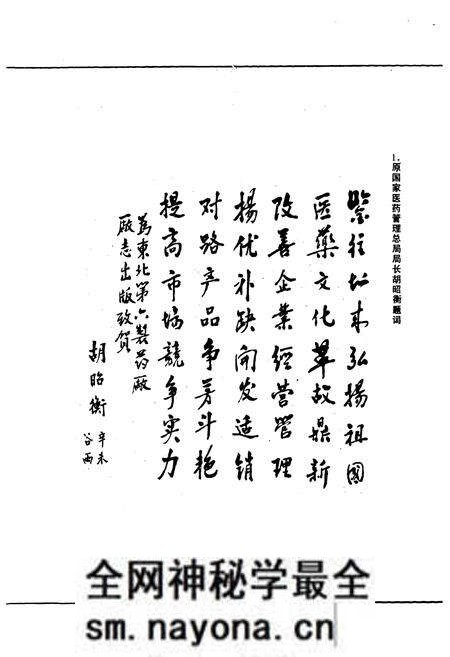 1.原国家医药管理总局局长胡昭衡题词
鑒往知来弘揚祖國
医藥文化革故鼎新
改善企業經营管理
揚优补缺開发适销
对路产品争芳斗艳
提高市場競争实力
為東北第六製药廠
廠志出版致贺
胡昭衡 辛未
谷雨
全网神秘学最全
sm.nayona.cn